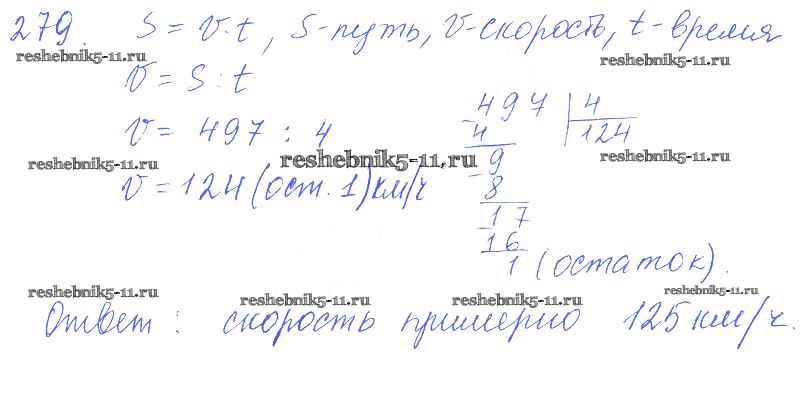 279. S = v·t, S-путь, v-скорость, t-время
reshebnik5-11.ru reshebnik5-11.ru
v = S : t
497 | 4
v = 497 : 4
4 124
reshebnik5-11.ru reshebnik5-11.ru reshebnik5-11.ru
9
v = 124 (ост. 1) км/ч
8
17
16
1 (остаток).
reshebnik5-11.ru reshebnik5-11.ru reshebnik5-11.ru reshebnik5-11.ru
Ответ: скорость примерно 125 км/ч.